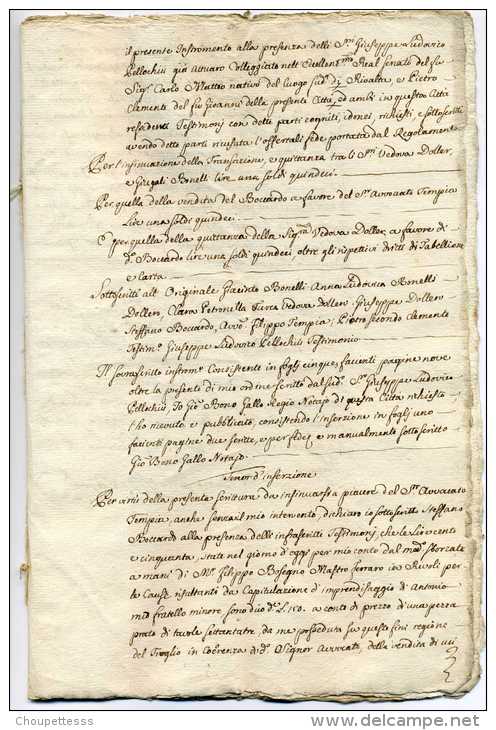 il presente Instromento alla presenza delli Sri. Giuseppe Ludovico
Pellochiù già Attuaro Colleggiato nell' Eccellen.mo Real Senato del fu
Sig. Carlo Matteo nativo del luogo sud. di Rivalta, e Pietro
Clementi del fu Gioanni della presente Città, ed ambi in questa Città
residenti Testimonj con dette parti cogniti, idonei, richiesti, e sottoscritti
avendo dette parti ricusata l'offertali fede portata dal Regolamento
Per l'insinuazione della Transazione, e quittanza tra li Sri. Vedova Doller,
e Giugali Bonelli lire una soldi quindeci.
Per quella della vendita del Boccardo a favore del Sr. Avvocato Tempia
Lire una soldi quindeci.
E per quella della quittanza della Sigra. Vedova Doller a favore di
d. Boccardo lire una soldi quindeci oltre gli rispetivi dritti di Tabellione
e carta.
Sottoscritti all' Originale Giacinto Bonelli Anna Ludovica Bonelli
Dollero, Clara Petronella Turca Vedova Dollero. Giuseppe Dollero
Steffano Boccardo, Avvo. Filippo Tempia; Pietro secondo Clemente
Testimo. Giuseppe Ludovico Pellochiù Testimonio.
Il soprascritto instrom. Consistente in foglj cinque, facienti pagine nove
oltre la presente di mio ordine scritto dal sud. Sr. Giuseppe Ludovico
Pellochiù Io Gio. Bono Gallo Regio Notajo di questa Città richiesto
l'ho ricevuto e pubblicato, consistendo l'inserzione in foglj uno
facienti pagine due scritte, e per fede, e manualmente sottoscritto
Gio. Bono Gallo Notajo.
Tenor d'inserzione
Per vim della presente scrittura da insinuarsi a piacere del Sr. Avvocato
Tempia, anche senza il mio intervento, dichiaro io sottoscritto Steffano
Boccardo alla presenza delle infrascritti Testimonj, che le Lire venti
e cinquanta, state nel giorno d'oggi per mio conto dal med. sborsate
a mani di Mr. Filippo Bosegno Mastro ferraro in Rivoli per
le Cause risultanti da Capitulazione d'imprendissaggio di Antonio
mio fratello minore sono dette d. L. 150. a conto di prezzo d'una pezza
prato di tavole settantatre, da me posseduta su queste fini regione
del Troglio in Coerenza di d. Signor Avvocato, della vendita di cui
Choupettesss
www.delcampe.net